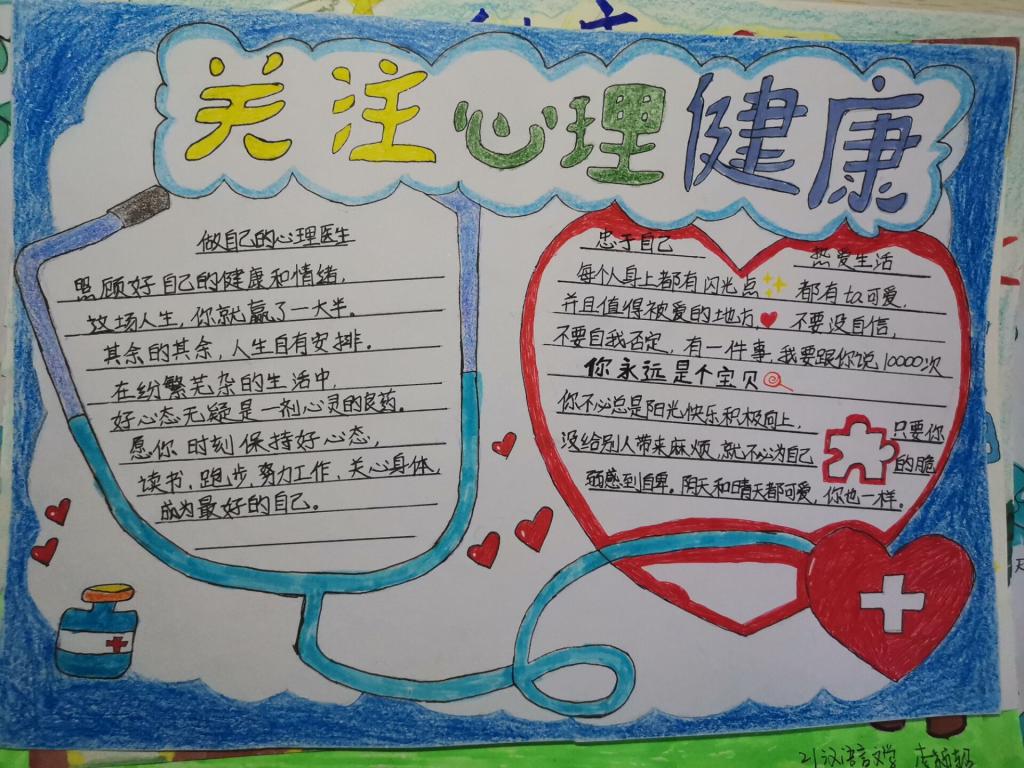 关注心理健康
做自己的心理医生
照顾好自己的健康和情绪,
这场人生,你就赢了一大半。
其余的其余,人生自有安排。
在纷繁芜杂的生活中,
好心态无疑是一剂心灵的良药。
愿你时刻保持好心态,
读书,跑步,努力工作,关心身体,
成为最好的自己。
忠于自己
热爱生活
每个人身上都有闪光点 都有ta可爱,
并且值得被爱的地方, 不要没自信,
不要自我否定,有一件事,我要跟你说10000次
你永远是个宝贝
你不必总是阳光快乐积极向上,
只要你
没给别人带来麻烦,就不必为自己
的脆
弱感到自卑。阴天和晴天都可爱,你也一样。
21汉语言文学